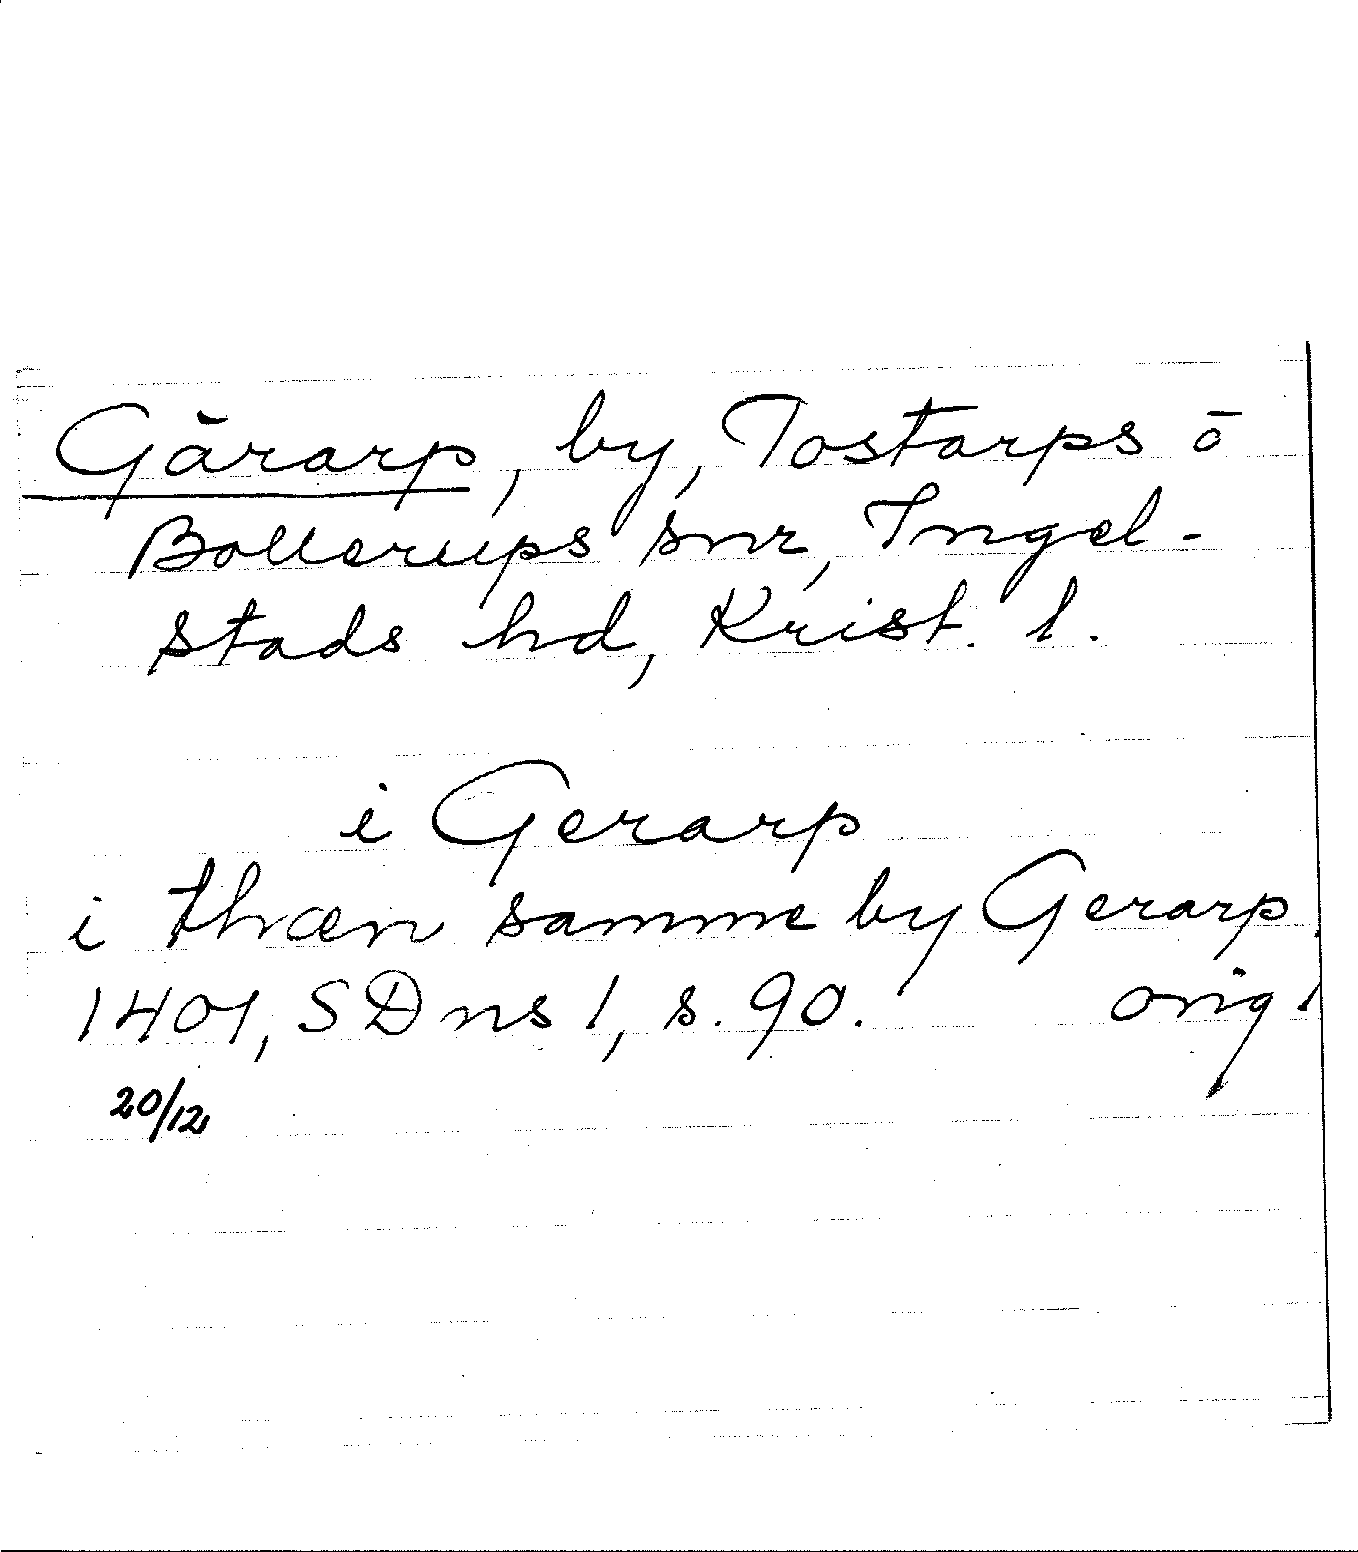 Gärarp, by, Tostarps o
Bollerups snr, Ingel-
stads hd, Krist. l.
i Gerarp
i thæn samme by Gerarp
1401, SDns 1, s. 90. orig!
20/12